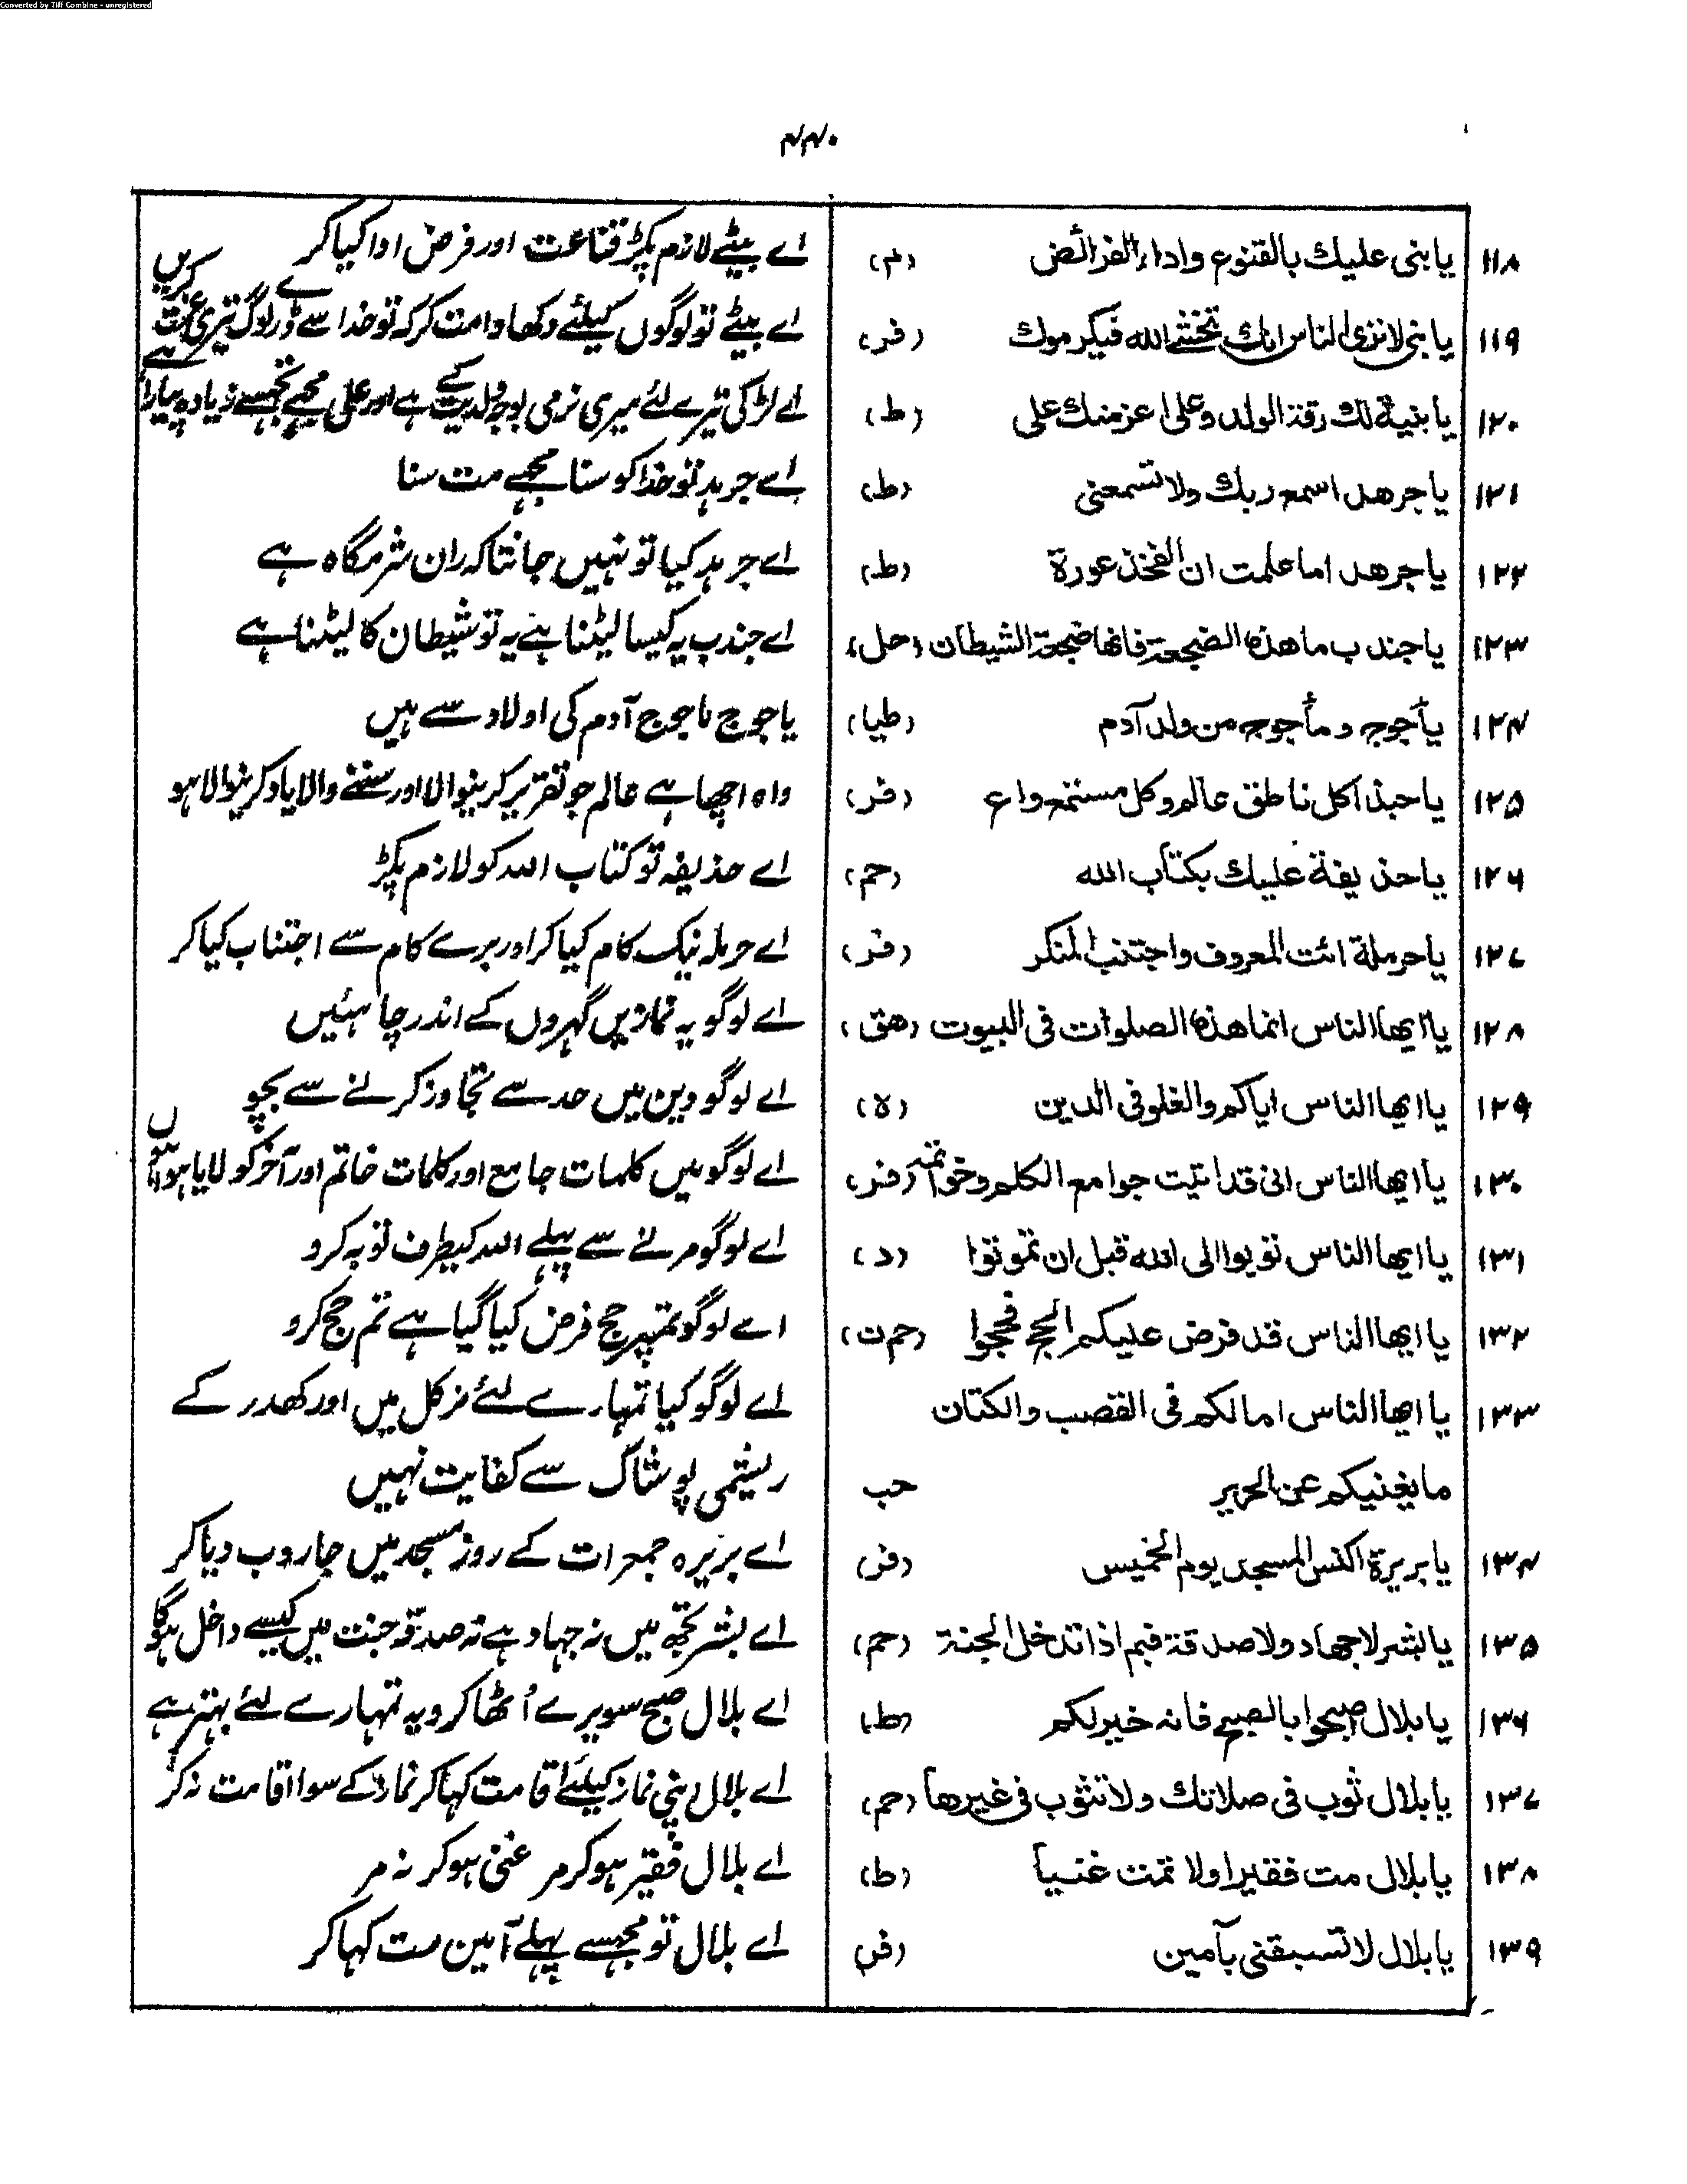 Converted by Tiff Combine - unregistered
۴۴۰
۱۱۸ یا بنی علیك بالقنوع واداء الفرائض (م) اے بیٹے لازم پکڑ قناعت اور فرض ادا کیا کر
۱۱۹ یا بنی لا تری الناس انك تخشے الله فیکرموك (فر) اے بیٹے تو لوگوں کیلئے دکھاوا مت کر کہ تو خدا سے ڈرے لوگ تیری عزت کریں
۱۲۰ یا بنیة لك رقة الولد وعلی اعز منك علی (ط) اے لڑکی تیرے لئے میری نرمی بوجہ ولدیت کے ہے اور علی مجھے تجھسے زیادہ پیارا ہے
۱۲۱ یا جرهد اسمع ربك ولا تسمعنی (ط) اے جرہد تو خدا کو سنا مجھے مت سنا
۱۲۲ یا جرهد اما علمت ان الفخذ عورة (ط) اے جرہد کیا تو نہیں جانتا کہ ران شرمگاہ ہے
۱۲۳ یا جندب ما هذه الضجعة فانها ضجعة الشیطان (حل) اے جندب یہ کیسا لیٹنا ہے یہ تو شیطان کا لیٹنا ہے
۱۲۴ یأجوج ومأجوج من ولد آدم (طیا) یاجوج ماجوج آدم کی اولاد سے ہیں
۱۲۵ یا حبذا کل ناطق عالم وکل مستمع واع (فر) واہ اچھا ہے عالم جو تقریر کرینوالا اور سننے والا یاد کرینوالا ہو
۱۲۶ یا حذیفة علیك بکتاب الله (حم) اے حذیفہ تو کتاب اللہ کو لازم پکڑ
۱۲۷ یا حرملة ائت المعروف واجتنب المنکر (فر) اے حرملہ نیک کام کیا کر اور برے کام سے اجتناب کیا کر
۱۲۸ یا ایها الناس انما هذه الصلوات فی البیوت (هق) اے لوگو یہ نمازیں گہروں کے اندر چاہئیں
۱۲۹ یا ایها الناس ایاکم والغلو فی الدین (ه) اے لوگو دین میں حد سے تجاوز کرنے سے بچو
۱۳۰ یا ایها الناس انی قد اتیت جوامع الکلم وخواتمه (فر) اے لوگو میں کلمات جامع اور کلمات خاتم اور آخر کو لایا ہوا ہوں
۱۳۱ یا ایها الناس توبوا الی الله قبل ان تموتوا (د) اے لوگو مرنے سے پہلے اللہ کیطرف توبہ کرو
۱۳۲ یا ایها الناس قد فرض علیکم الحج فحجوا (حم ت) اے لوگو تمپر حج فرض کیا گیا ہے تم حج کرو
۱۳۳ یا ایها الناس اما لکم فی القصب والکتان اے لوگو کیا تمہارے لئے نرکل میں اور کھدر کے
ما یغنیکم عن الحریر حب ریشمی پوشاک سے کفایت نہیں
۱۳۴ یا بریرة اکنس المسجد یوم الخمیس (فر) اے بریرہ جمعرات کے روز مسجد میں جاروب دیا کر
۱۳۵ یا بشر لا جهاد ولا صدقة فبم اذا تدخل الجنة (حم) اے بشر تجھ میں نہ جہاد ہے نہ صدقہ تو جنت میں کیسے داخل ہوگا
۱۳۶ یا بلال اصبحوا بالصبح فانه خیر لکم (ط) اے بلال صبح سویرے اُٹھا کرو یہ تمہارے لئے بہتر ہے
۱۳۷ یا بلال ثوب فی صلاتك ولا تثوب فی غیرها (حم) اے بلال اپنی نماز کیلئے اقامت کہا کر نماز کے سوا اقامت نہ کر
۱۳۸ یا بلال مت فقیرا ولا تمت غنیا (ط) اے بلال فقیر ہوکر مر غنی ہوکر نہ مر
۱۳۹ یا بلال لا تسبقنی بآمین (فر) اے بلال تو مجھسے پہلے آمین مت کہا کر